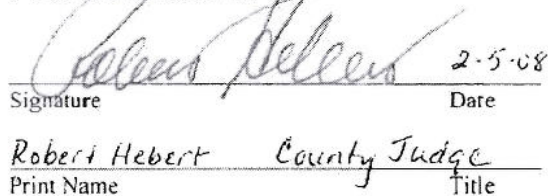 Robert Hebert 2-5-08
Signature Date
Robert Hebert County Judge
Print Name Title